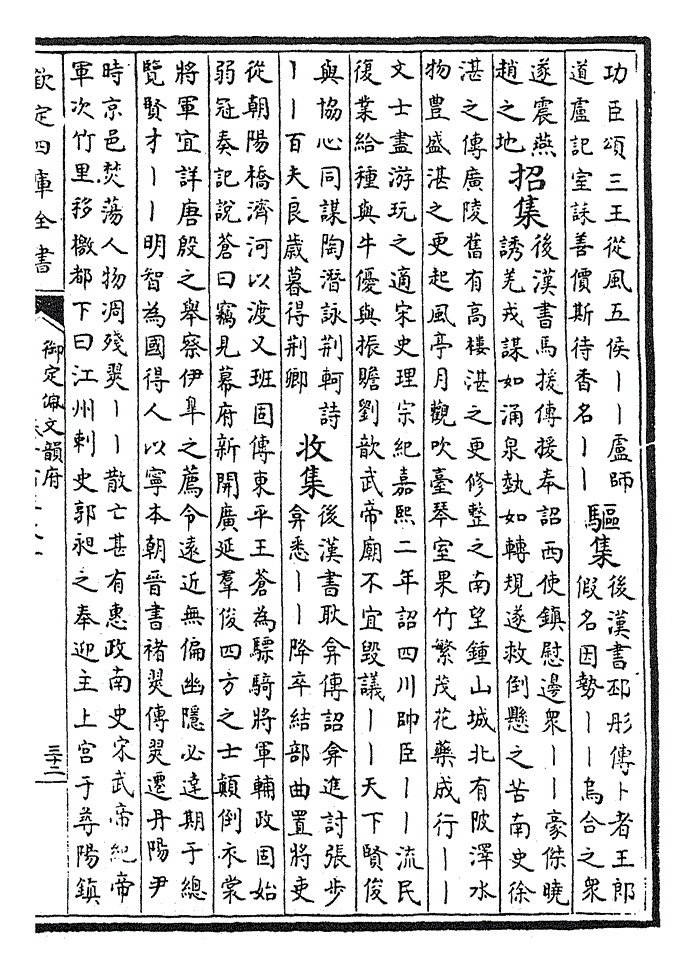 功臣頌三王從風五侯丨丨盧師
道盧記室誄善價斯待香名丨丨
驅集
後漢書邳彤傳卜者王郎
假名因勢丨丨烏合之衆
遂震燕
趙之地
招集
後漢書馬援傳援奉詔西使鎮慰邊衆丨丨豪傑曉
誘羌戎謀如涌泉埶如轉規遂救倒懸之苦南史徐
湛之傳廣陵舊有高樓湛之更修整之南望鍾山城北有陂澤水
物豊盛湛之更起風亭月觀吹臺琴室果竹繁茂花藥成行丨丨
文士盡游玩之適宋史理宗紀嘉熙二年詔四川帥臣丨丨流民
復業給種與牛優與振贍劉歆武帝廟不宜毀議丨丨天下賢俊
與協心同謀陶潛詠荆軻詩
丨丨百夫良歲暮得荆卿
收集
後漢書耿弇傳詔弇進討張步
弇悉丨丨降卒結部曲置將吏
從朝陽橋濟河以渡又班固傳東平王蒼為驃騎將軍輔政固始
弱冠奏記說蒼曰竊見幕府新開廣延羣俊四方之士顛倒衣裳
將軍宜詳唐殷之舉察伊臯之薦令遠近無偏幽隱必達期于總
覽賢才丨丨明智為國得人以寧本朝晉書褚翜傳翜遷丹陽尹
時京邑焚蕩人物凋殘翜丨丨散亡甚有惠政南史宋武帝紀帝
軍次竹里移檄都下曰江州刺史郭昶之奉迎主上宫于尋陽鎮
欽定四庫全書
御定佩文韻府
三十二